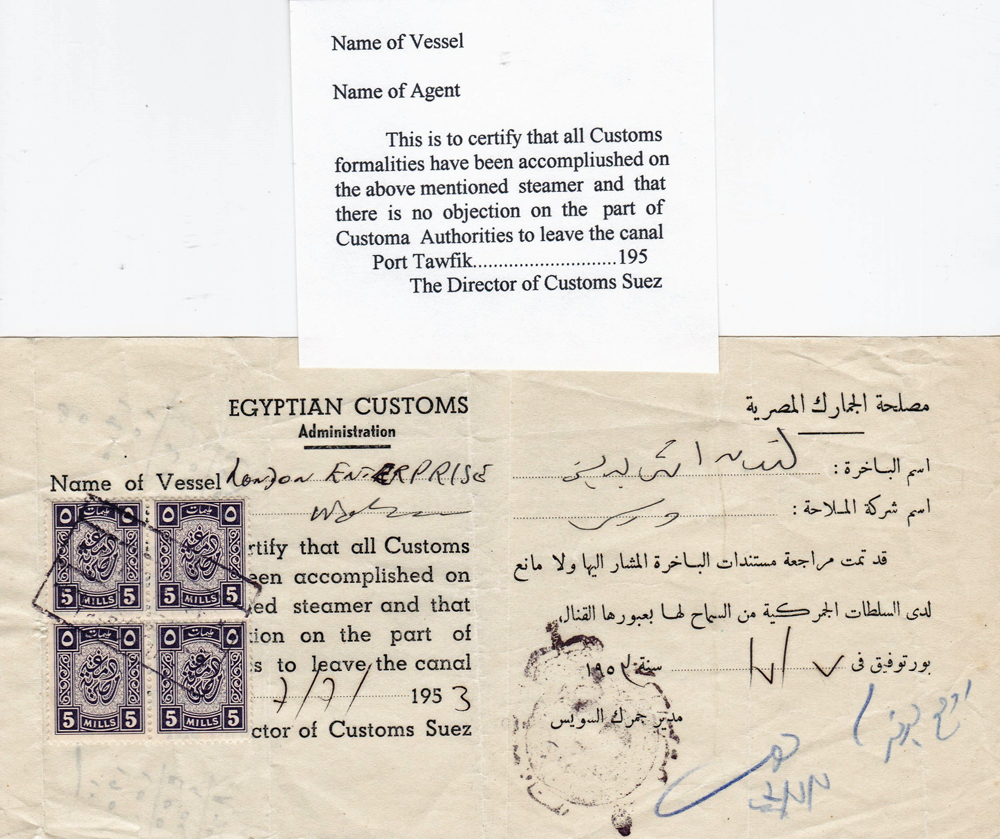 Name of Vessel
Name of Agent
This is to certify that all Customs
formalities have been accompliushed on
the above mentioned steamer and that
there is no objection on the part of
Customa Authorities to leave the canal
Port Tawfik..............................195
The Director of Customs Suez
EGYPTIAN CUSTOMS
Administration
Name of Vessel LONDON ENTERPRISE
rtify that all Customs
een accomplished on
ed steamer and that
ion on the part of
s to leave the canal
7/7/ 1953
ctor of Customs Suez
٥ مليمات ٥
دمغة
5 MILLS 5
٥ مليمات ٥
دمغة
5 MILLS 5
٥ مليمات ٥
دمغة
5 MILLS 5
٥ مليمات ٥
دمغة
5 MILLS 5
مصلحة الجمارك المصرية
اسم الباخرة :
اسم شركة الملاحة :
قد تمت مراجعة مستندات الباخرة المشار اليها ولا مانع
لدى السلطات الجمركية من السماح لها بعبورها القنال
بورتوفيق فى ٧/٧ سنة ١٩٥٣
مدير جمرك السويس